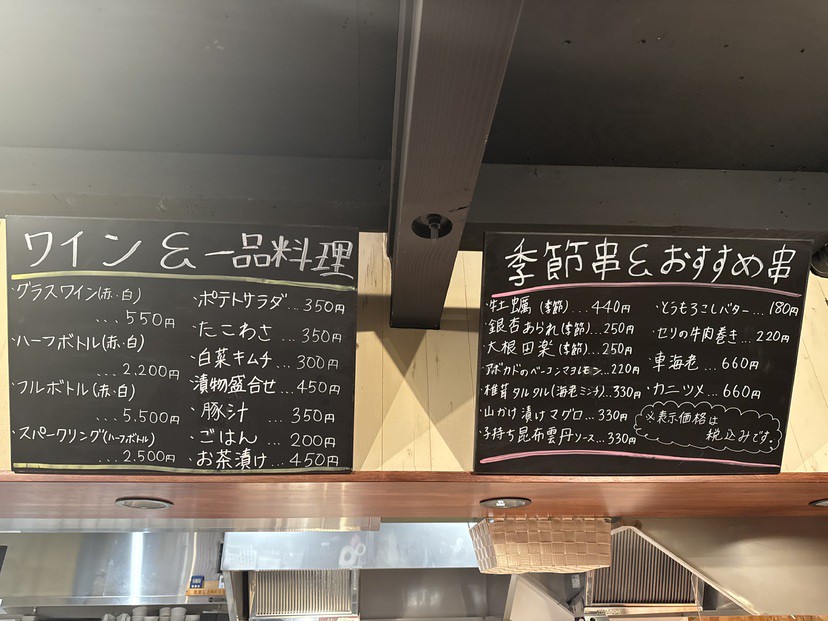 ワイン & 一品料理
・グラスワイン(赤・白)
...550円
・ハーフボトル(赤・白)
...2.200円
・フルボトル(赤・白)
...5.500円
・スパークリング(ハーフボトル)
...2.500円
・ポテトサラダ...350円
・たこわさ...350円
・白菜キムチ...300円
・漬物盛合せ...450円
・豚汁...350円
・ごはん...200円
・お茶漬け...450円
季節串&おすすめ串
・牡蠣(季節)...440円
・銀杏あられ(季節)...250円
・大根田楽(季節)...250円
・アボカドのベーコンマヨレモン...220円
・椎茸タルタル(海老ミンチ)...330円
・山かけ漬けマグロ...330円
・子持ち昆布雲丹ソース...330円
・とうもろこしバター...180円
・セリの牛肉巻き...220円
・車海老...660円
・カニツメ...660円
※表示価格は
税込みです。